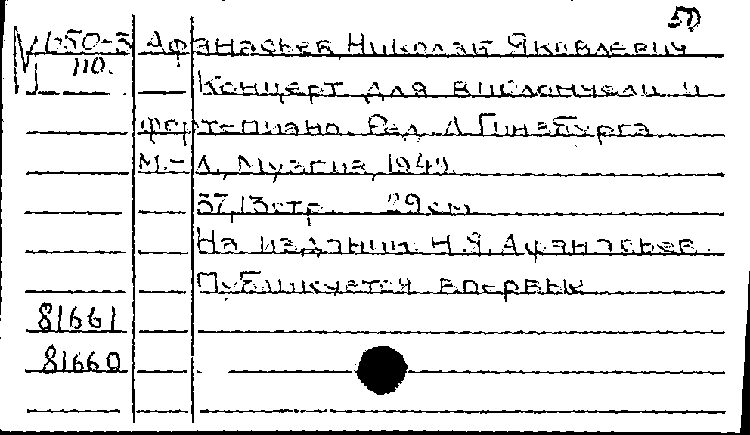 50
М50-3 Афанасьев, Николай Яковлевич
110. Концерт для виолончели и
фортепиано. Ред. Л. Гинзбурга
М.-Л., Музгиз, 1949.
37, 13 стр. 29 см
На издании: Н.Я. Афанасьев.
Публикуется впервые
81661
81660